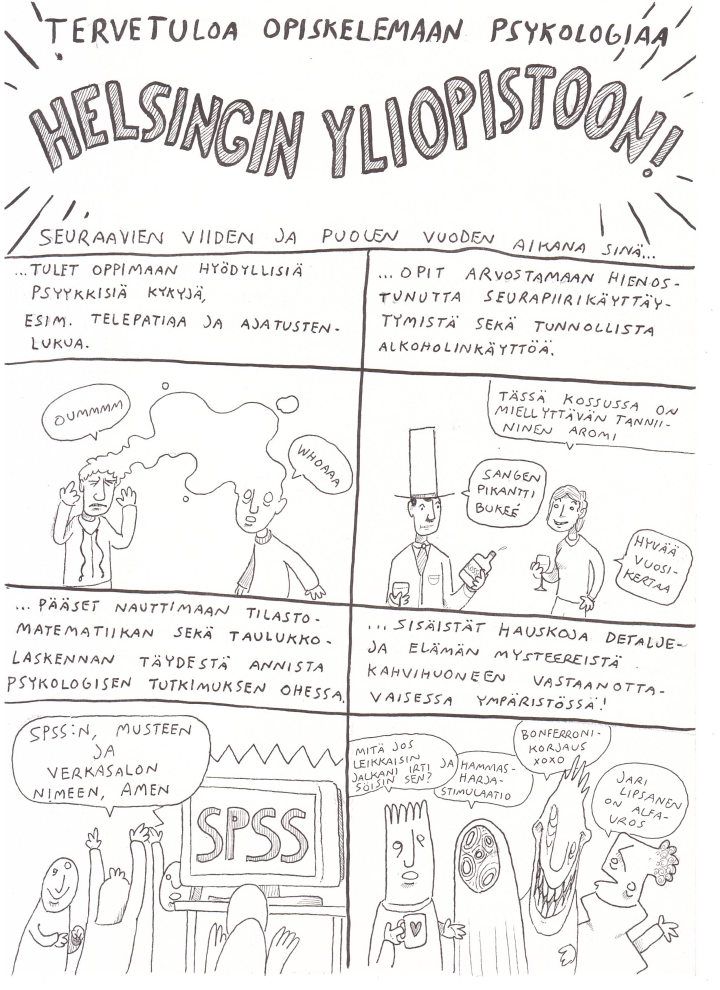 TERVETULOA OPISKELEMAAN PSYKOLOGIAA
HELSINGIN YLIOPISTOON!
SEURAAVIEN VIIDEN JA PUOLEN VUODEN AIKANA SINÄ...
...TULET OPPIMAAN HYÖDYLLISIÄ
PSYYKKISIÄ KYKYJÄ,
ESIM. TELEPATIAA JA AJATUSTEN-
LUKUA.
OUMMMM
WHOAAA
...OPIT ARVOSTAMAAN HIENOS-
TUNUTTA SEURAPIIRIKÄYTTÄY-
TYMISTÄ SEKÄ TUNNOLLISTA
ALKOHOLINKÄYTTÖÄ.
TÄSSÄ KOSSUSSA ON
MIELLYTTÄVÄN TANNII-
NINEN AROMI
SANGEN
PIKANTTI
BUKEÉ
HYVÄÄ
VUOSI-
KERTAA
...PÄÄSET NAUTTIMAAN TILASTO-
MATEMATIIKAN SEKÄ TAULUKKO-
LASKENNAN TÄYDESTÄ ANNISTA
PSYKOLOGISEN TUTKIMUKSEN OHESSA.
SPSS:N, MUSTEEN
JA
VERKASALON
NIMEEN, AMEN
SPSS
...SISÄISTÄT HAUSKOJA DETALJE-
JA ELÄMÄN MYSTEEREISTÄ
KAHVIHUONEEN VASTAANOTTA-
VAISESSA YMPÄRISTÖSSÄ!
MITÄ JOS
LEIKKAISIN
JALKANI IRTI JA
SÖISIN SEN?
HAMMAS-
HARJA-
STIMULAATIO
BONFERRONI-
KORJAUS
XOXO
JARI
LIPSANEN
ON ALFA-
UROS